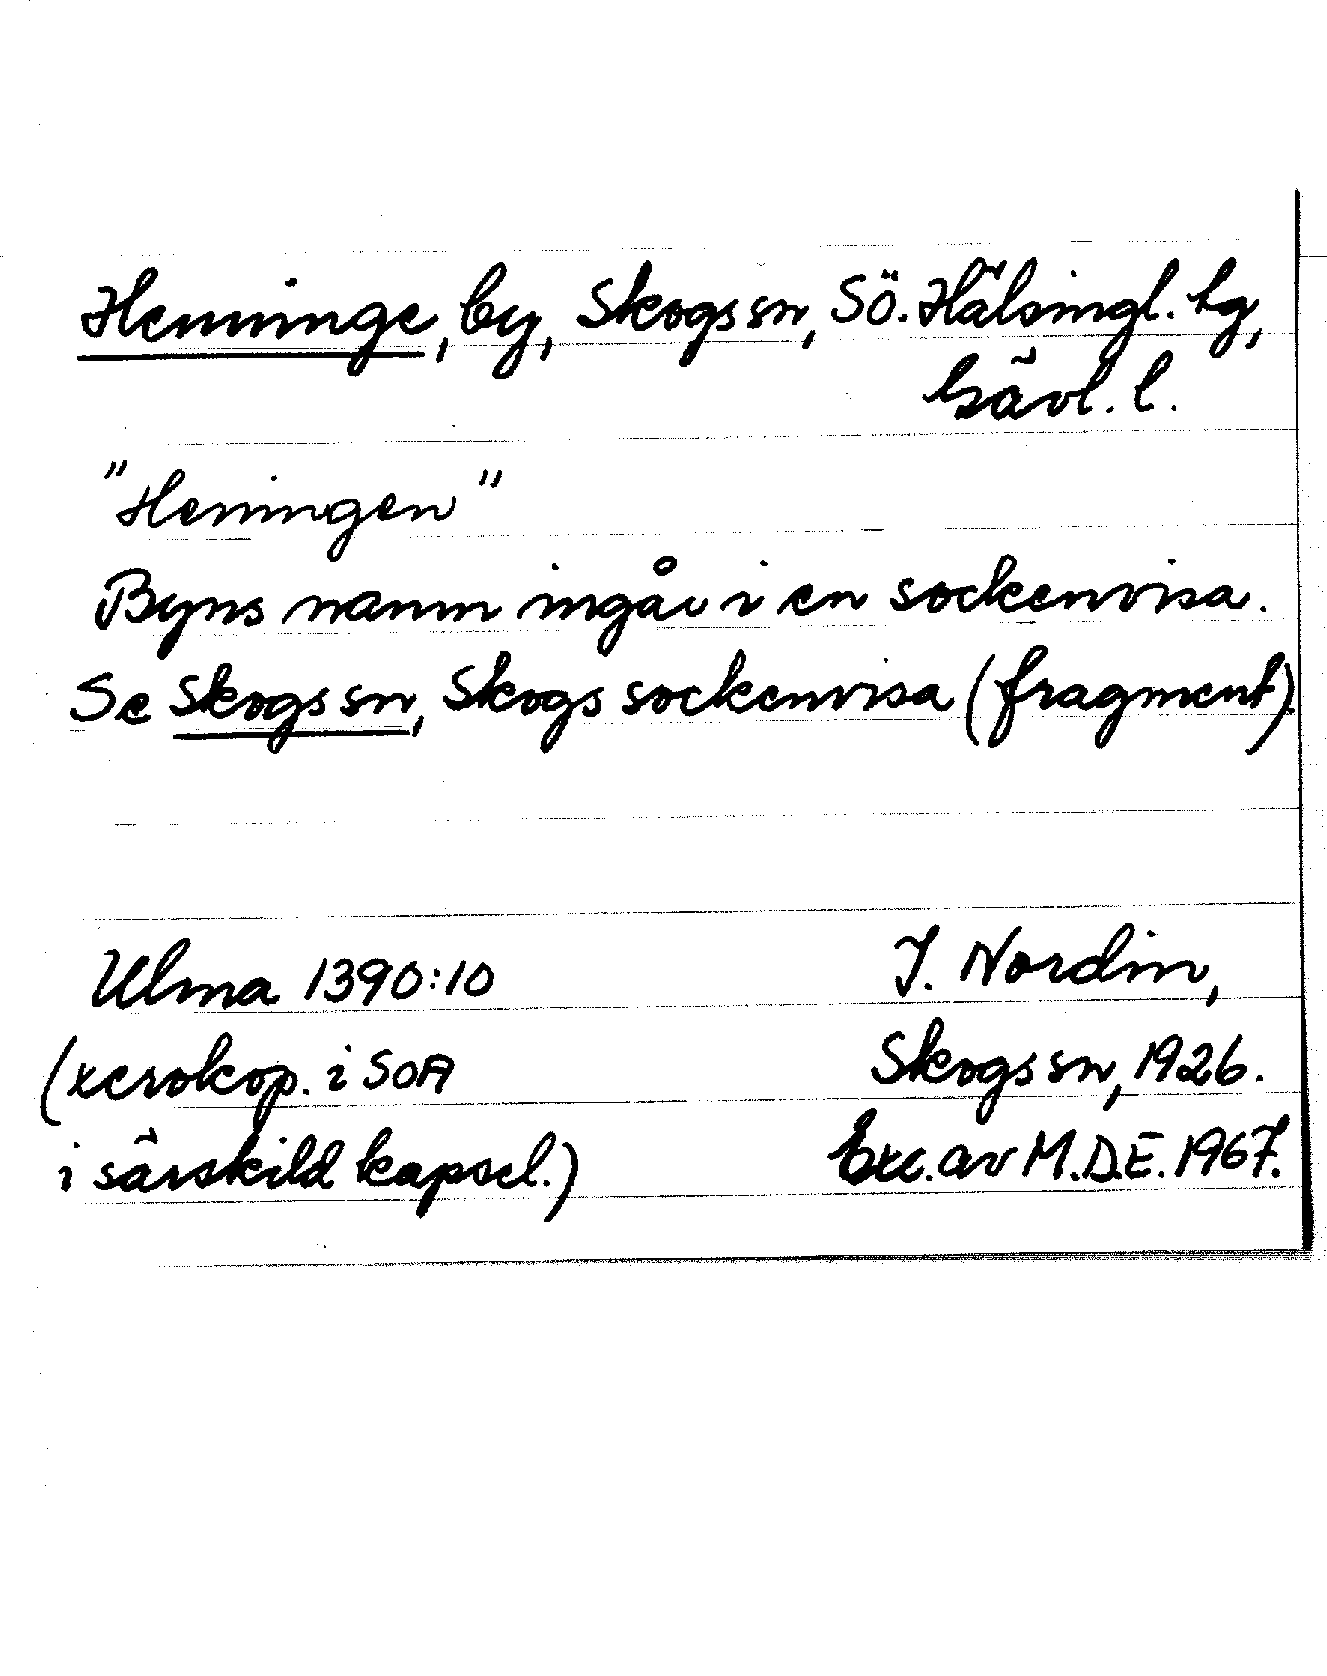 Henninge, by, Skogs sn, Sö. Hälsingl. hg,
Gävl. l.
"Heningen"
Byns namn ingår i en sockenvisa.
Se Skogs sn, Skogs sockenvisa (fragment).
Ulma 1390:10
(xerokop. i SOA
i särskild kapsel.)
J. Nordin,
Skogs sn, 1926.
Exc. av M.D.E. 1967.